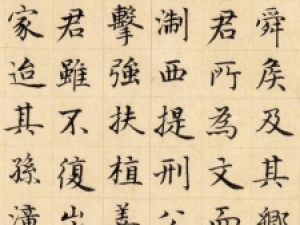 舜矦及其鄉
君所為文而
淛西提刑公
擊強扶植善
君雖不復出
家迨其孫潼